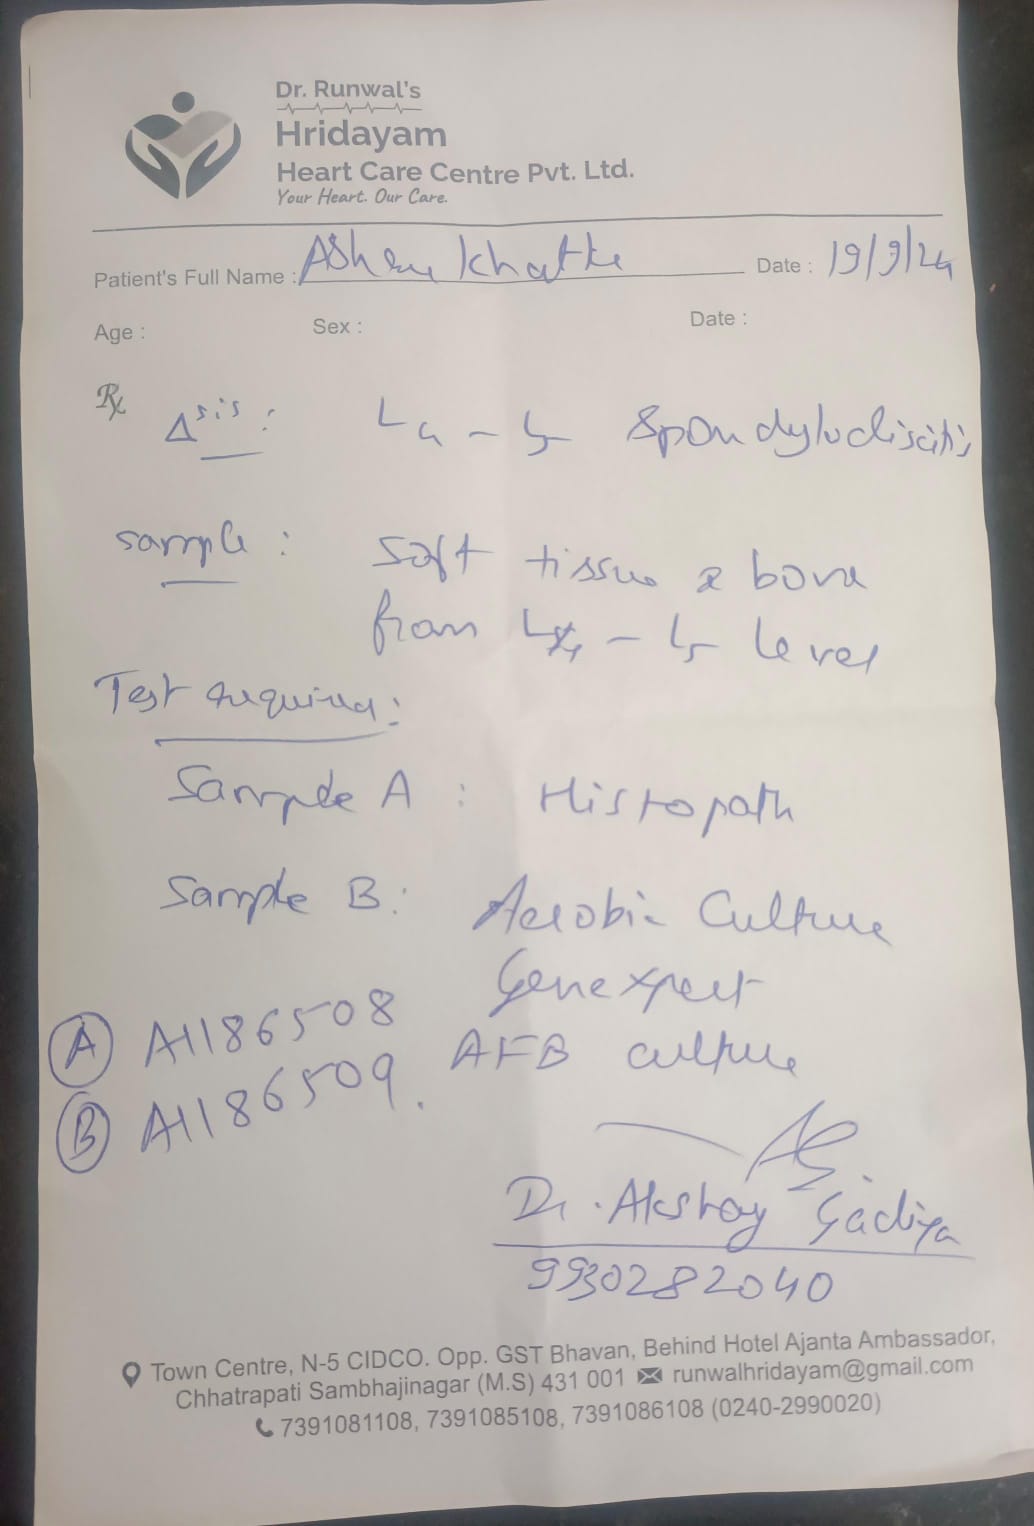 Dr. Runwal's
Hridayam
Heart Care Centre Pvt. Ltd.
Your Heart. Our Care.
Patient's Full Name : Khatke Date : 19/9/24
Age : Sex : Date :
Rx
Δsis : L4 - L5 Spondylodiscitis
Sample : Soft tissue & bone
from L4 - L5 level
Test required :
Sample A : Histopath
Sample B : Aerobic Culture
Genexpert
AFB culture
A A1186508
B A1186509.
Dr. Akshay Gadiya
9930282040
Town Centre, N-5 CIDCO. Opp. GST Bhavan, Behind Hotel Ajanta Ambassador,
Chhatrapati Sambhajinagar (M.S) 431 001 runwalhridayam@gmail.com
7391081108, 7391085108, 7391086108 (0240-2990020)